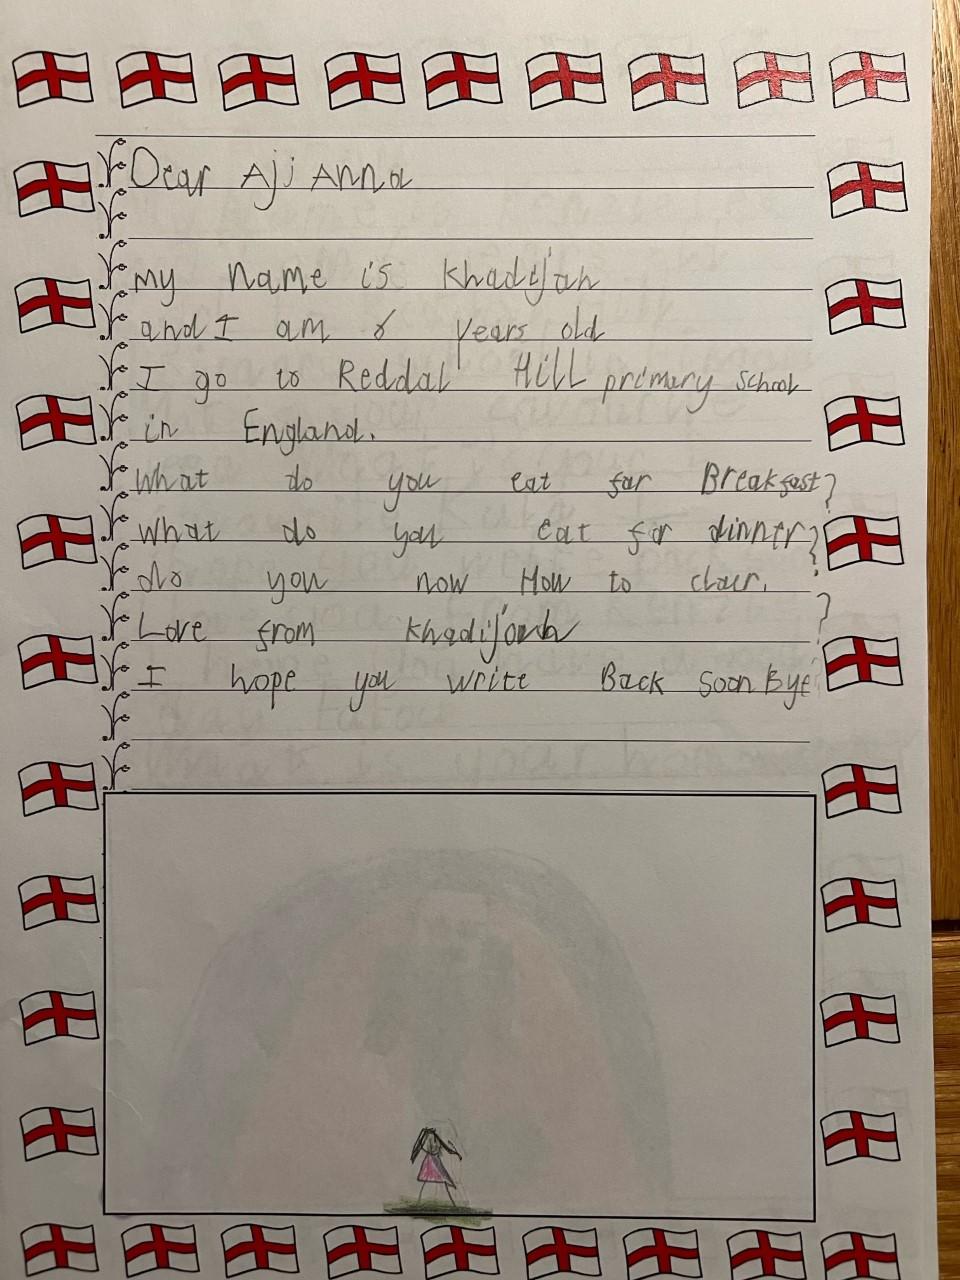 Dear Aji Anna
my name is Khadijah
and I am 6 years old
I go to Reddal Hill primary school
in England.
What do you eat for Breakfast?
What do you eat for dinner?
do you now How to
Love from Khadijah
I hope you write Back soon Bye